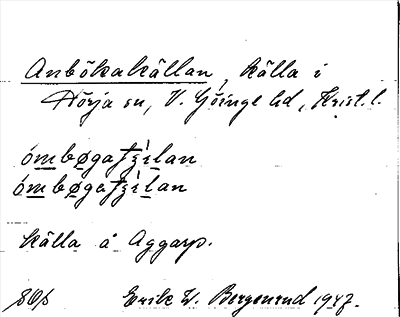 Anbökakällan, källa i
Nörja sn, V. Göinge hd, Krist. l.
ómbøgatʃìlan
ómbøgatʃìlan
källa å Aggarp.
Erik W. Bergenrud 1947.